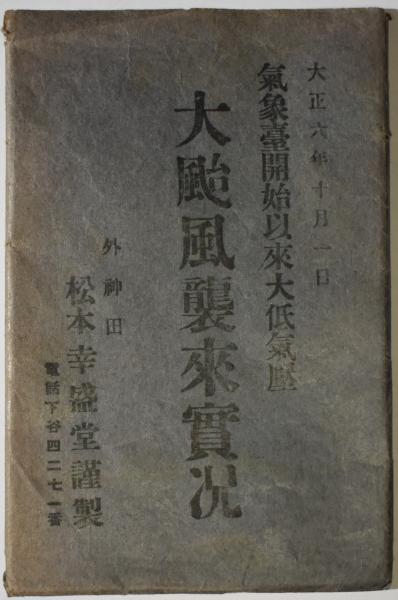 大正六年十月一日
氣象臺開始以來大低氣壓
大颱風襲來實況
外神田
松本幸盛堂謹製
電話下谷四二七一番